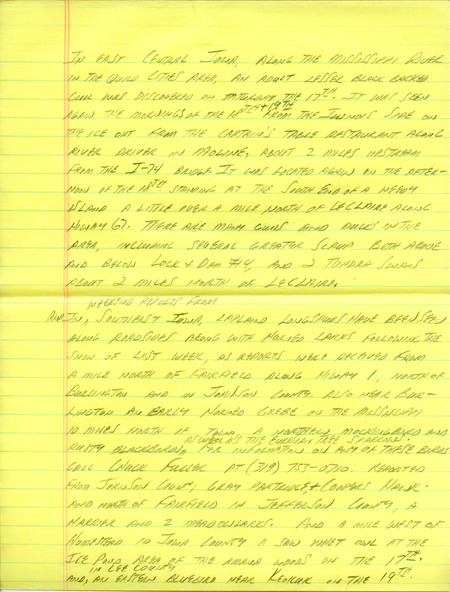 IN EAST CENTRAL IOWA, ALONG THE MISSISSIPPI RIVER
IN THE QUAD CITIES AREA, AN ADULT LESSER BLACK BACKED
GULL WAS DISCOVERED ON THE 17TH. IT WAS SEEN
AGAIN THE MORNINGS OF THE 18TH & 19TH FROM THE ILLINOIS SIDE ON
THE ICE OUT FROM THE CAPTAIN'S TABLE RESTAURANT ALONG
RIVER DRIVE IN MOLINE, ABOUT 2 MILES UPSTREAM
FROM THE I-74 BRIDGE. IT WAS LOCATED AGAIN ON THE AFTER-
NOON OF THE 18TH STANDING AT THE SOUTH END OF A WEEDY
ISLAND A LITTLE OVER A MILE NORTH OF LECLAIRE ALONG
HIWAY 67. THERE ARE MANY GULLS AND DUCKS IN THE
AREA, INCLUDING SEVERAL GREATER SCAUP BOTH ABOVE
AND BELOW LOCK & DAM #14, AND 2 TUNDRA SWANS
ABOUT 2 MILES NORTH OF LECLAIRE.
WEEKEND REPORTS FROM
AND IN, SOUTHEAST IOWA, LAPLAND LONGSPURS HAVE BEEN SEEN
ALONG ROADSIDES ALONG WITH HORNED LARKS FOLLOWING THE
SNOW OF LAST WEEK, AS REPORTS WERE RECEIVED FROM
A MILE NORTH OF FAIRFIELD ALONG HIWAY 1, NORTH OF
BURLINGTON AND IN JOHNSON COUNTY. ALSO NEAR BUR-
LINGTON AN EARLY HORNED GREBE ON THE MISSISSIPPI
10 MILES NORTH OF TOWN, A NORTHERN MOCKINGBIRD AND
AS WELL AS THE EURASIAN TREE SPARROW.
RUSTY BLACKBIRDS, FOR INFORMATION ON ANY OF THESE BIRDS
CALL CHUCK FULLER AT (319) 753-0710. REPORTED
FROM JOHNSON COUNTY, GRAY PARTRIDGE, & COOPERS HAWK
AND NORTH OF FAIRFIELD IN JEFFERSON COUNTY, A
HARRIER AND 2 MEADOWLARKS. AND A MILE WEST OF
HOMESTEAD IN IOWA COUNTY A SAW WHET OWL AT THE
ICE POND AREA OF THE AMANA WOODS ON THE 17TH.
IN LEE COUNTY
AND, AN EASTERN BLUEBIRD NEAR KEOKUK ON THE 19TH.